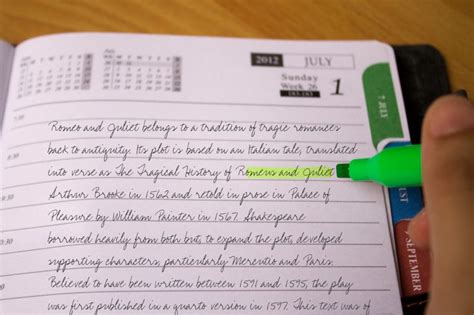 2012 JULY
Sunday
Week 26
183-183
1
7 JULY
7:30
Romeo and Juliet belongs to a tradition of tragic romances
back to antiquity. Its plot is based on an Italian tale, translated
into verse as The Tragical History of Romeus and Juliet
Arthur Brooke in 1562 and retold in prose in Palace of
Pleasure by William Painter in 1567. Shakespeare
borrowed heavily from both but, to expand the plot, developed
supporting characters, particularly Mercutio and Paris.
Believed to have been written between 1591 and 1595, the play
was first published in a quarto version in 1597. This text was of
AUGUST
9 SEPTEMBER